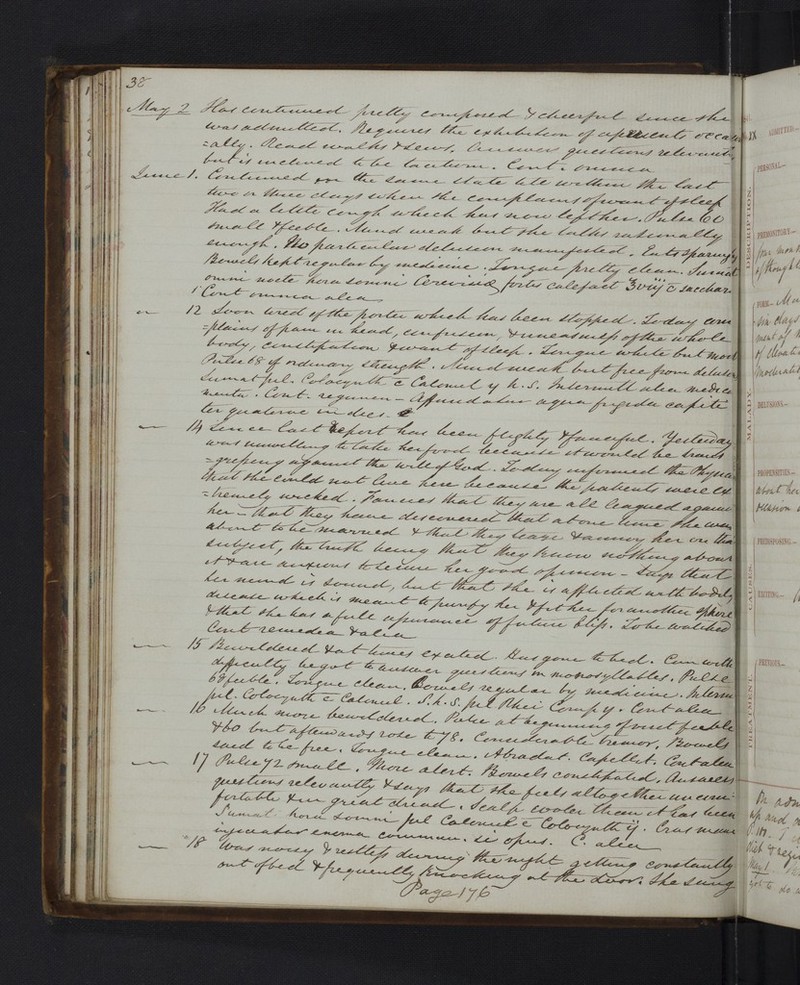 38
May 2 Has continued pretty composed & cheerful since she
was admitted. Requires the exhibition of aperients occasion
=ally. Read walks & sews. Answers questions relevantly,
but is inclined to be taciturn. Cont. omnia
June 1. Continued in the same state till within the last
two or three days when she complains of want of sleep
Had a little cough which has now left her. Pulse 60
small & feeble. Mind weak but she talks rationally
enough. No particular delusion manifested. Eats sparingly
Bowels kept regular by medicine. Tongue pretty clean. Sumat
omni nocte hora somni Cerevisiæ fortis calefact ℥viij c̄ sacchar
Cont omnia alea
12 Soon tired of the porter which has been stopped. Today com
=plains of pain in head, confusion, & uneasiness of the whole
body, constipation & want of sleep. Tongue white but moist
Pulse 68 of ordinary strength. Mind weak but free from delusion
Sumat pil. Colocynth c̄ Calomel ij h.s. Intermitt alea medica
menta. Cont. regimen – Affund aqua frigida capite
ter quaterve in dies.
14 Since last Report has been flighty & fanciful. Yesterday
was unwilling to take her food because it would be trans
=gressing against the will of God. Today informed the Physician
that she could not live here because the patients were ex
=tremely wicked. Fancies that they are all leagued against
her – that they have discovered that at one time she was
about to be married & that they tease & annoy her on that
subject, the truth being that they know nothing about
it & are anxious to secure her good opinion – Says that
her mind is sound, but that she is afflicted with bodily
disease which is meant to purify her & fit her for another sphere
& that she has a full assurance of future bliss. To be watched
Cont remedea & alea
15 Bewildered & at times excited. Has gone to bed. Can with
difficulty be got to answer questions in monosyllables. Pulse
68 feeble. Tongue clean. Bowels regular by medicine. Interm
pil. Colocynth c̄ Calomel. S.h.S. pil Rhei Comp ij. Cont alea
16 Much more bewildered. Pulse at beginning of visit feeble
& 60 but afterwards rose to 78. Considerable tremor, Bowels
said to be free. Tongue clean. Abradat. Capillit. Cont alea
17 Pulse 72 small. More alert. Bowels constipated, Answers
questions relevantly & says that she feels altogether uncom
fortable & in great dread. Scalp cooler than it has been
Sumat hora somni pil Calomel c̄ Colocynth ij. Cras mane
injiceatur enema commun. si opus. C. alea
18 Was noisy & restless during the night getting constantly
out of bed & frequently knocking at the door. She sung
Page 176
ADMITTED
PERSONAL
DESCRIPTION
PREMONITORY
four mon
of though
FORM
six days
ment of
of elevati
moderate
MALADY
DELUSIONS
PROPENSITIES
about her
occasion
PREDISPOSING
CAUSES
EXCITING
PREVIOUS
TREATMENT
On adm
up and
May 1